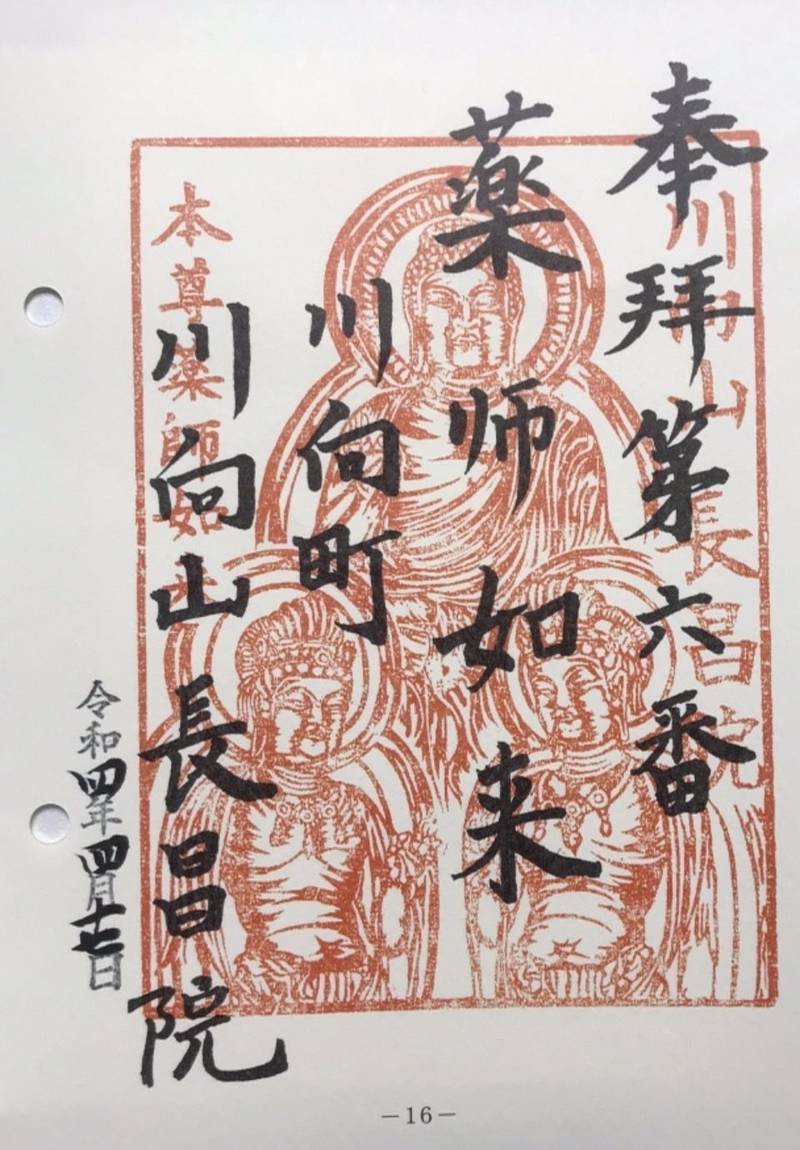 奉拝第六番
川向山長昌院
薬师如来
川向町
川向山長昌院
本尊薬師如来
令和四年四月十七日
－16－